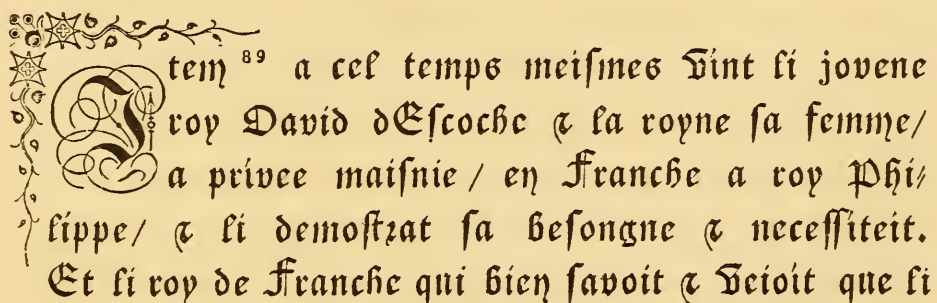 Item ⁸⁹ a cel temps meiſmes vint li jovene
roy David dEſcoche ⁊ la royne ſa femme/
a privee maiſnie / en Franche a roy Phi⸗
lippe/ ⁊ li demoſtꝛat ſa beſongne ⁊ neceſſiteit.
Et li roy de Franche qui bien ſavoit ⁊ veioit que li